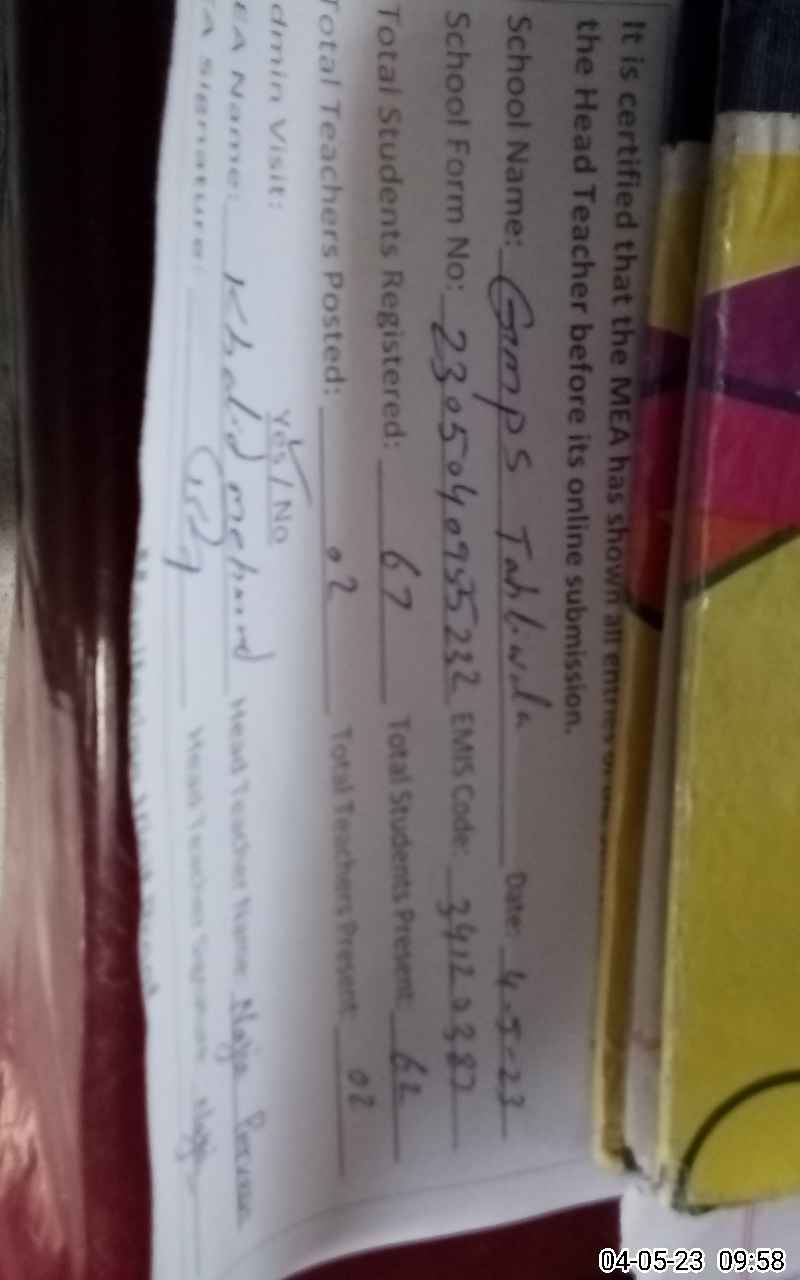 It is certified that the MEA has shown all entries of the
the Head Teacher before its online submission.
School Name: Gmps Tahliwala Date: 4-5-23
School Form No: 2305040955232 EMIS Code: 34120387
Total Students Registered: 67 Total Students Present: 62
Total Teachers Posted: 02 Total Teachers Present: 02
dmin Visit: Yes / No
EA Name: Khalid mehmood Head Teacher Name:
A Signature: Head Teacher Signature:
04-05-23 09:58